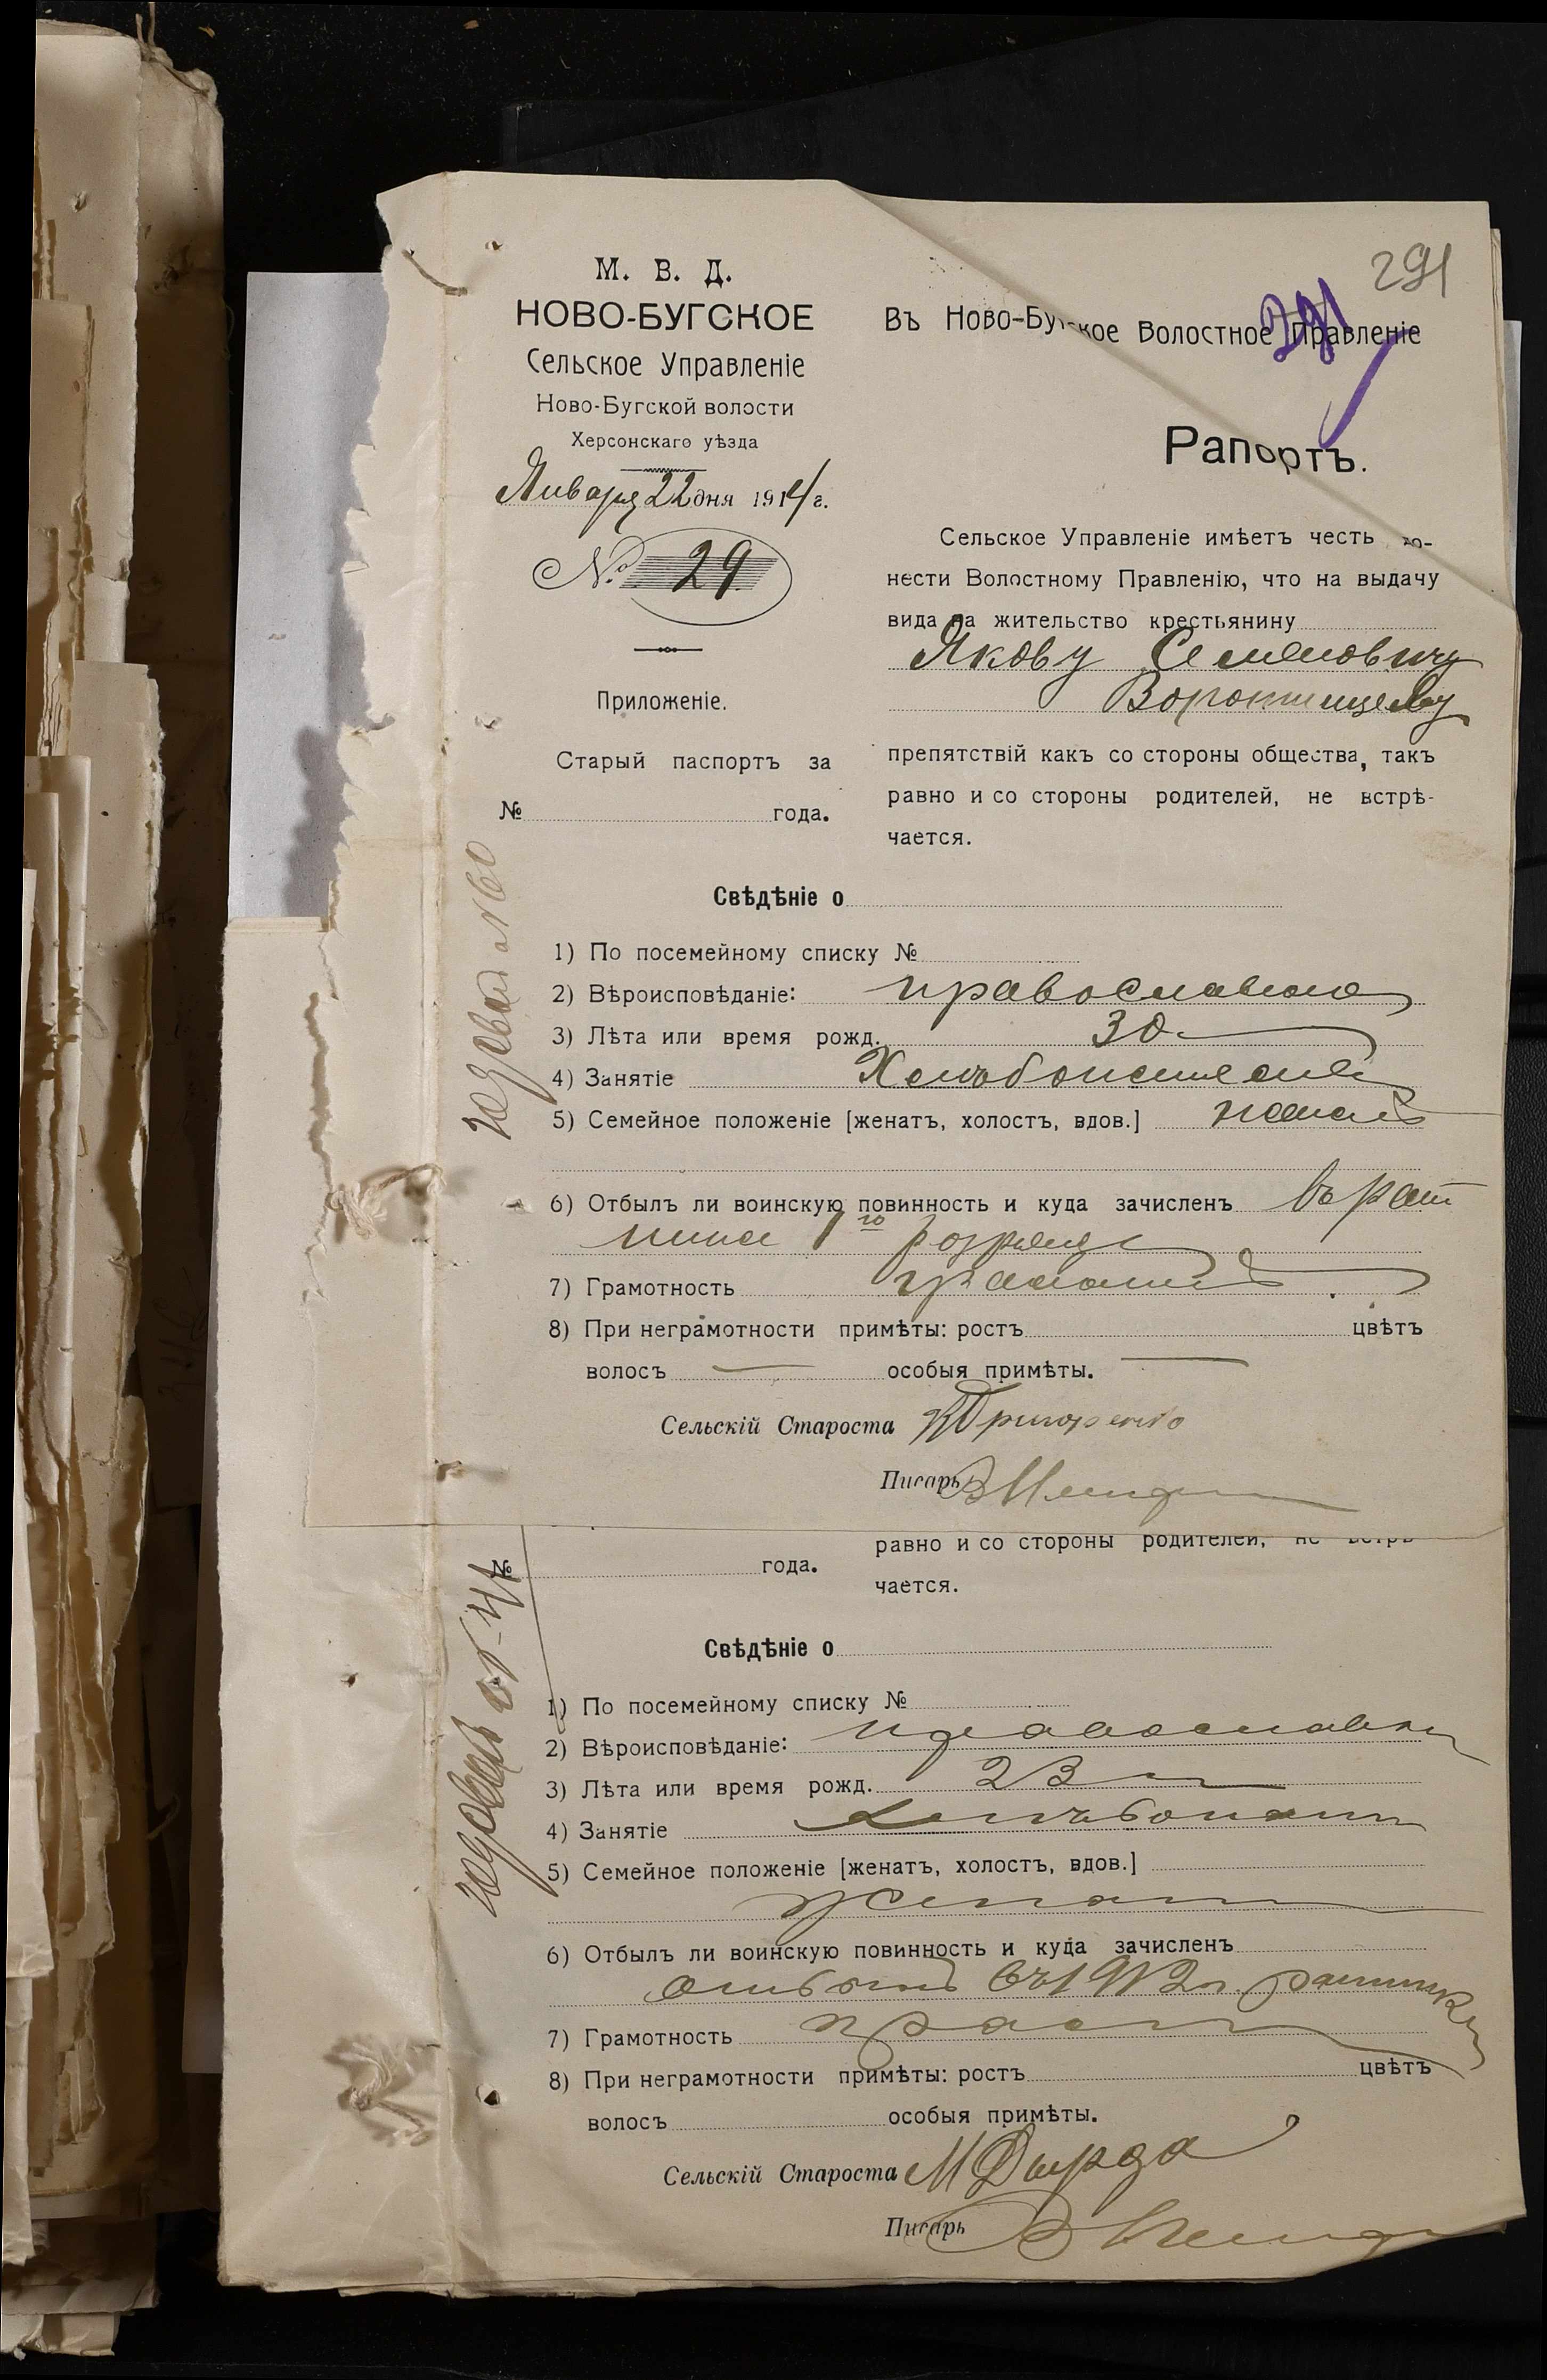 291
291
М. В. Д.
НОВО-БУГСКОЕ
Сельское Управленіе
Ново-Бугской волости
Херсонскаго уѣзда
Января 22 дня 1914 г.
№ 29
Приложеніе.
Старый паспортъ за
№ года.
Въ Ново-Бугское Волостное Правленіе
Рапортъ.
Сельское Управленіе имѣетъ честь до-
нести Волостному Правленію, что на выдачу
вида на жительство крестьянину
Якову Семеновичу
препятствій какъ со стороны общества, такъ
равно и со стороны родителей, не встрѣ-
чается.
годовой № 60
Свѣдѣніе о
1) По посемейному списку №
2) Вѣроисповѣданіе: православное
3) Лѣта или время рожд. 30
4) Занятіе
5) Семейное положеніе [женатъ, холостъ, вдов.] женатъ
6) Отбылъ ли воинскую повинность и куда зачисленъ въ рат
ники 1го разряда
7) Грамотность
8) При неграмотности примѣты: ростъ цвѣтъ
волосъ особыя примѣты.
Сельскій Староста
Писарь
равно и со стороны родителей, не встрѣ
№ года.
чается.
годовой
Свѣдѣніе о
1) По посемейному списку №
2) Вѣроисповѣданіе:
3) Лѣта или время рожд. 23
4) Занятіе
5) Семейное положеніе [женатъ, холостъ, вдов.]
женат
6) Отбылъ ли воинскую повинность и куда зачисленъ
7) Грамотность
8) При неграмотности примѣты: ростъ цвѣтъ
волосъ особыя примѣты.
Сельскій Староста М Дырда
Писарь